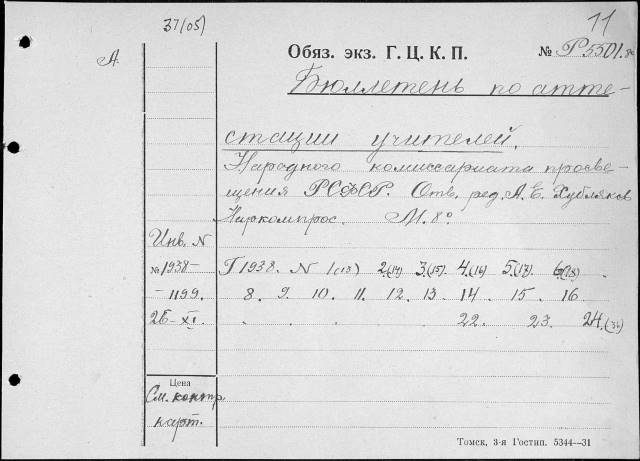 37(05)
11
А
Обяз. экз. Г. Ц. К. П. № Р5501.
Бюллетень по атте-
стации учителей.
Народного комиссариата просве-
щения РСФСР. Отв. ред. А. Е. Хубляков
Наркомпрос. М. 8°
Инв. N
№ 1938-
-1199.
26-XI.
Г 1938. N 1(13) 2(14) 3(15). 4.(16) 5.(17). 6(18).
8. 9. 10. 11. 12. 13. 14. 15. 16
22. 23. 24.(36)
Цена
См. контр.
карт.
Томск, 3-я Гостип. 5344—31